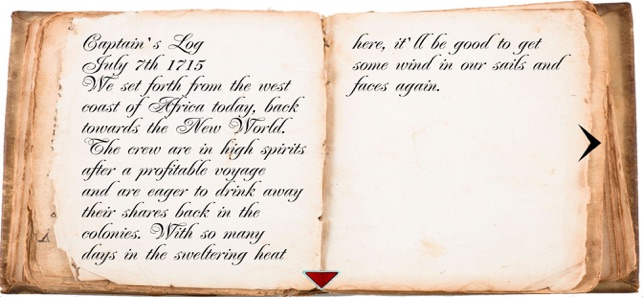 Captain's Log
July 7th 1715
We set forth from the west
coast of Africa today, back
towards the New World.
The crew are in high spirits
after a profitable voyage
and are eager to drink away
their shares back in the
colonies. With so many
days in the sweltering heat
here, it'll be good to get
some wind in our sails and
faces again.